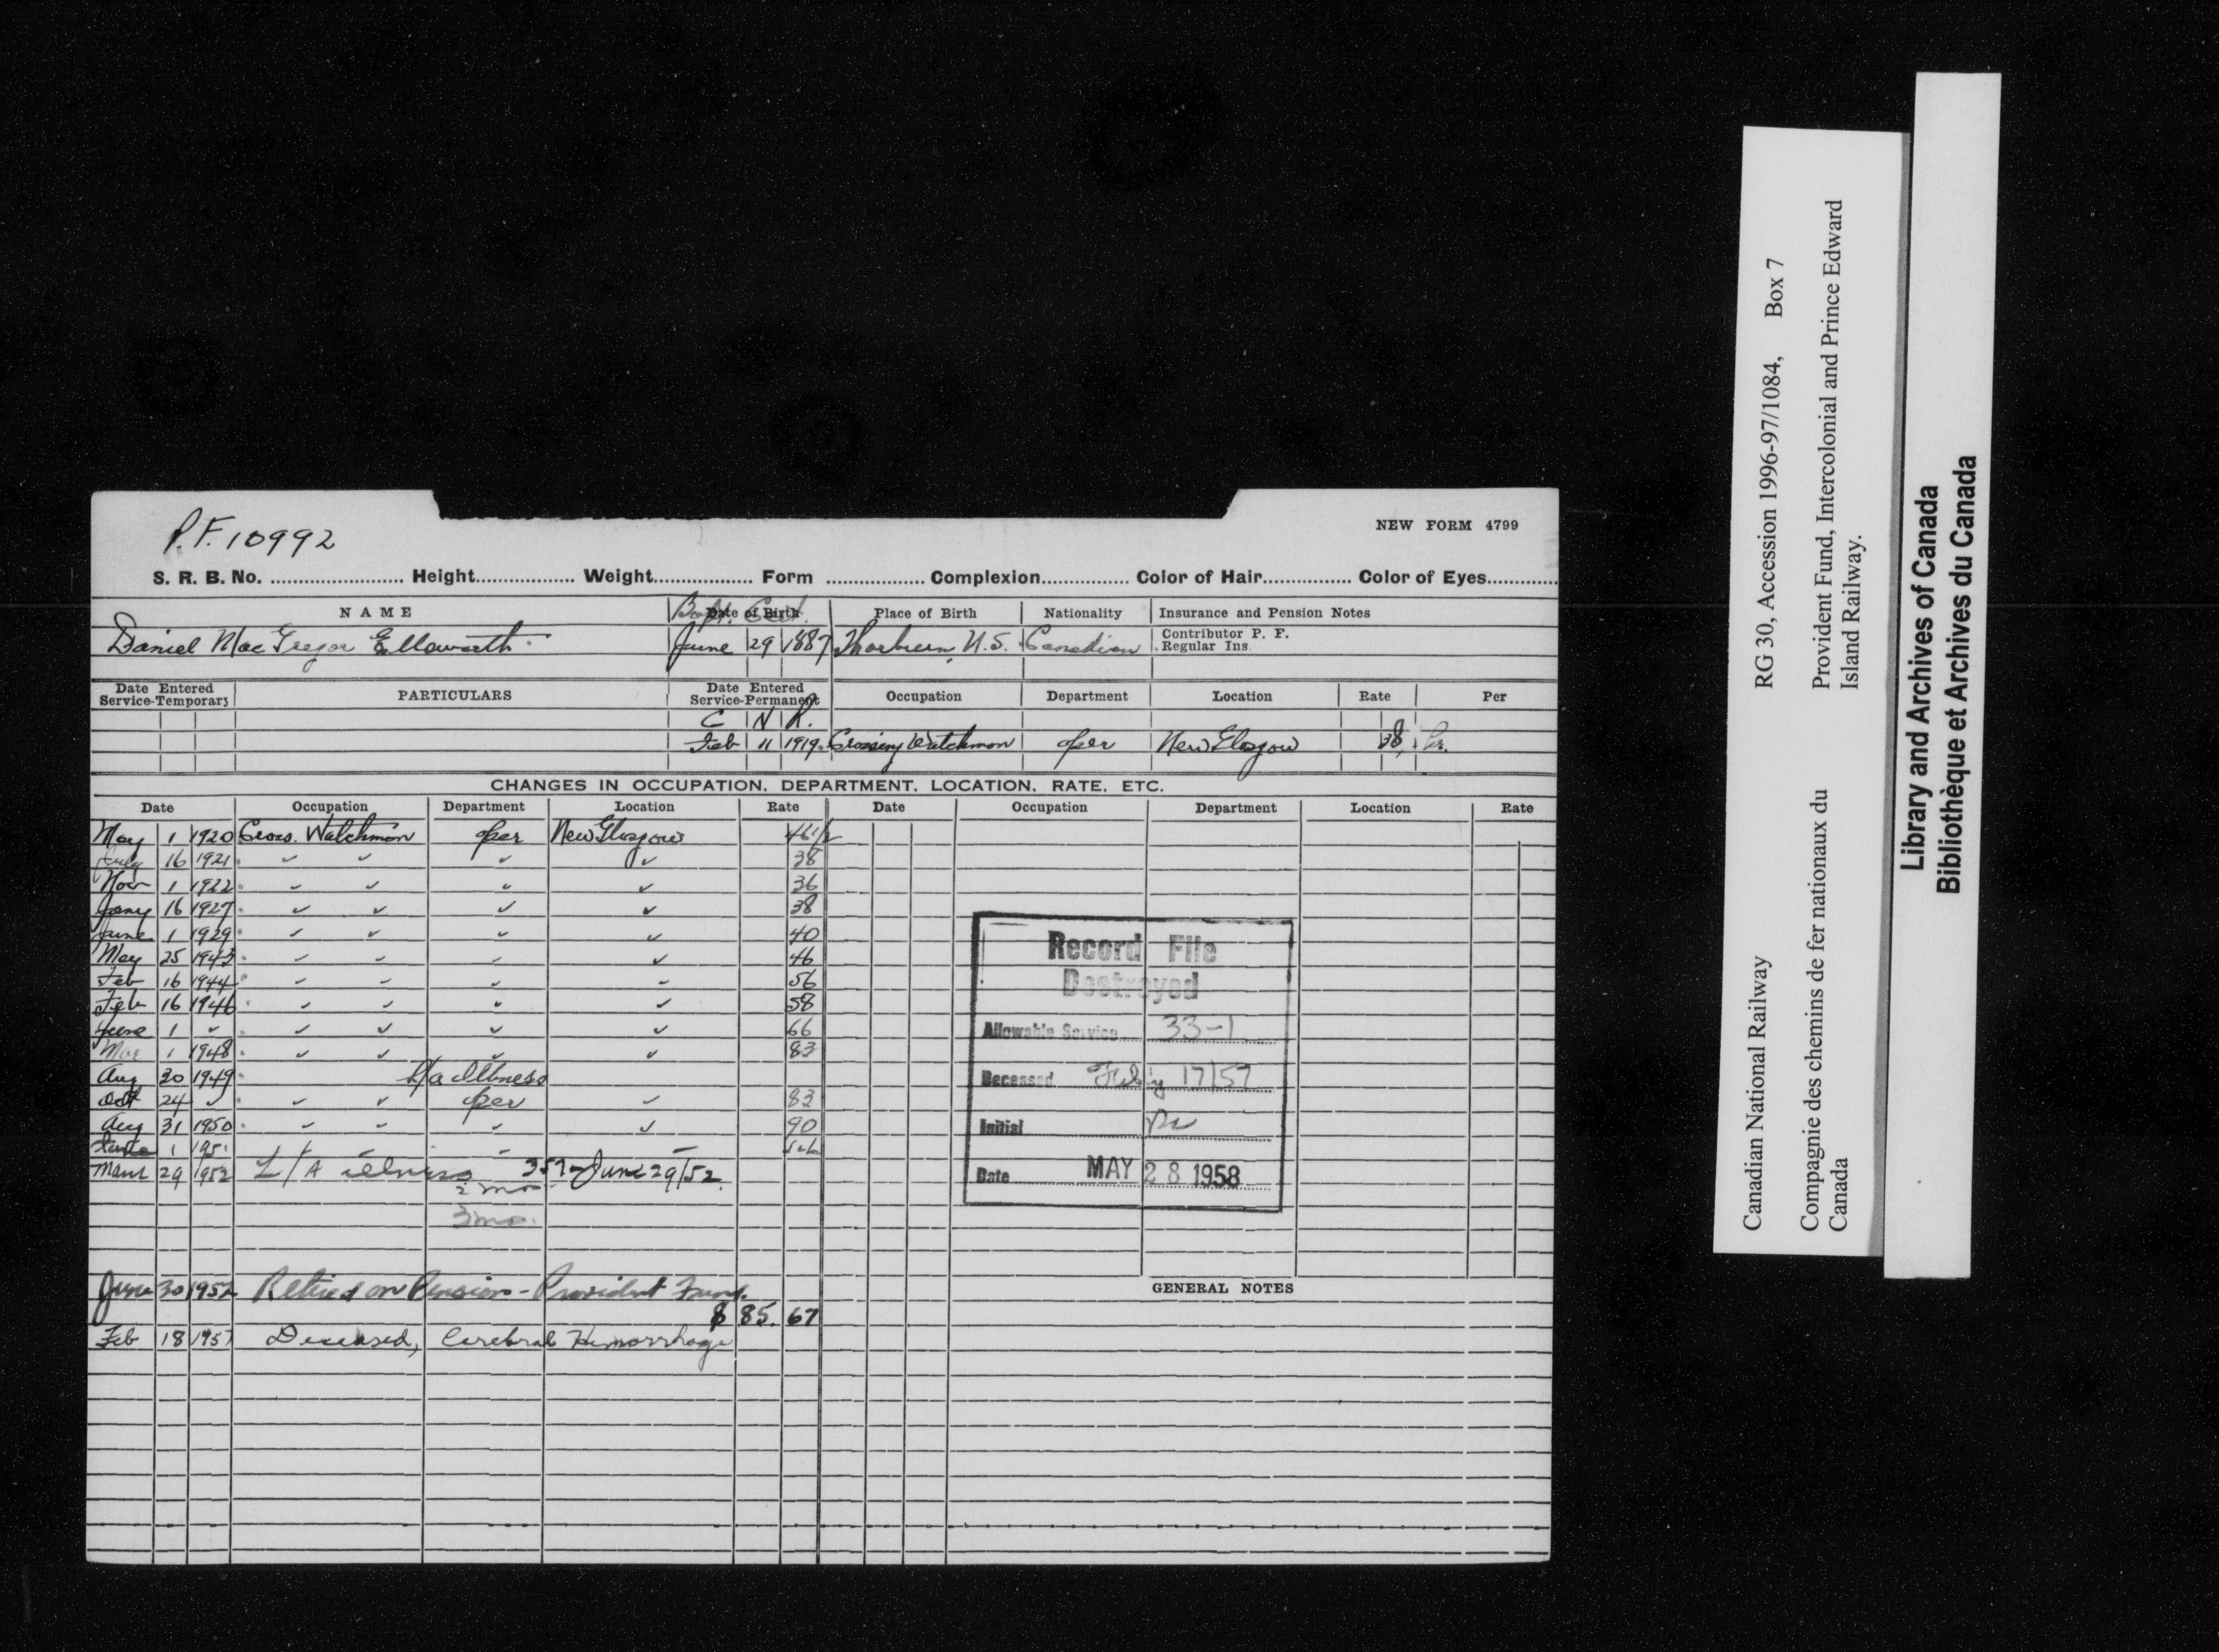 P.F. 10992
NEW FORM 4799
S. R. B. No. Height Weight Form Complexion Color of Hair Color of Eyes
NAME Date of Birth Place of Birth Nationality Insurance and Pension Notes
Bapt. Cert.
Daniel MacGregor Ellsworth June 29 1887 Thorburn, N.S. Canadian Contributor P. F.
Regular Ins.
Date Entered Service-Temporary PARTICULARS Date Entered Service-Permanent Occupation Department Location Rate Per
C N R.
Feb 11 1919 Crossing Watchman Oper New Glasgow 38 hr.
CHANGES IN OCCUPATION, DEPARTMENT, LOCATION, RATE, ETC.
Date Occupation Department Location Rate Date Occupation Department Location Rate
May 1 1920 Cross. Watchman Oper New Glasgow 46 1/2
July 16 1921 ✓ ✓ ✓ ✓ 38
Nov 1 1922 ✓ ✓ ✓ ✓ 36
Jany 16 1927 ✓ ✓ ✓ ✓ 38
June 1 1929 ✓ ✓ ✓ ✓ 40
May 25 1943 ✓ ✓ ✓ ✓ 46
Feb 16 1944 ✓ ✓ ✓ ✓ 56
Feb 16 1946 ✓ ✓ ✓ ✓ 58
June 1 ✓ ✓ ✓ ✓ ✓ 66
Mar 1 1948 ✓ ✓ ✓ ✓ 83
Aug 30 1949 L/a Illness
Oct 24 ✓ ✓ ✓ Oper ✓ 83
Aug 31 1950 ✓ ✓ ✓ ✓ 90
1 1951
29 1952 L/A illness June 29/52
2 mos
3 mo.
June 30 1952 Retired on Pension - Provident Fund.
$ 85.67
Feb 18 1957 Deceased, Cerebral Hemorrhage
Record File
Destroyed
Allowable Service 33-1
Deceased 17/57
Initial
Date MAY 28 1958
GENERAL NOTES
Canadian National Railway RG 30, Accession 1996-97/1084, Box 7
Compagnie des chemins de fer nationaux du Canada
Provident Fund, Intercolonial and Prince Edward Island Railway.
Library and Archives of Canada
Bibliothèque et Archives du Canada